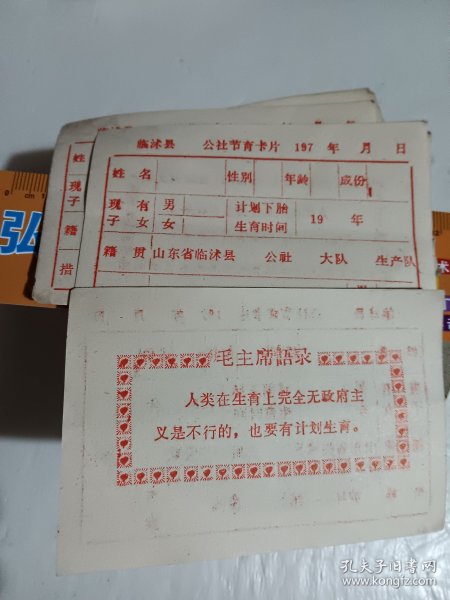 临沭县 公社节育卡片 197 年 月 日
姓名 性别 年龄 成份
现有子女 男 女 计划下胎生育时间 19 年
籍贯 山东省临沭县 公社 大队 生产队
姓
现
子
籍
措
弘
0 cm 1
毛主席語录
人类在生育上完全无政府主
义是不行的，也要有计划生育。
孔夫子旧书网
www.kongfz.com